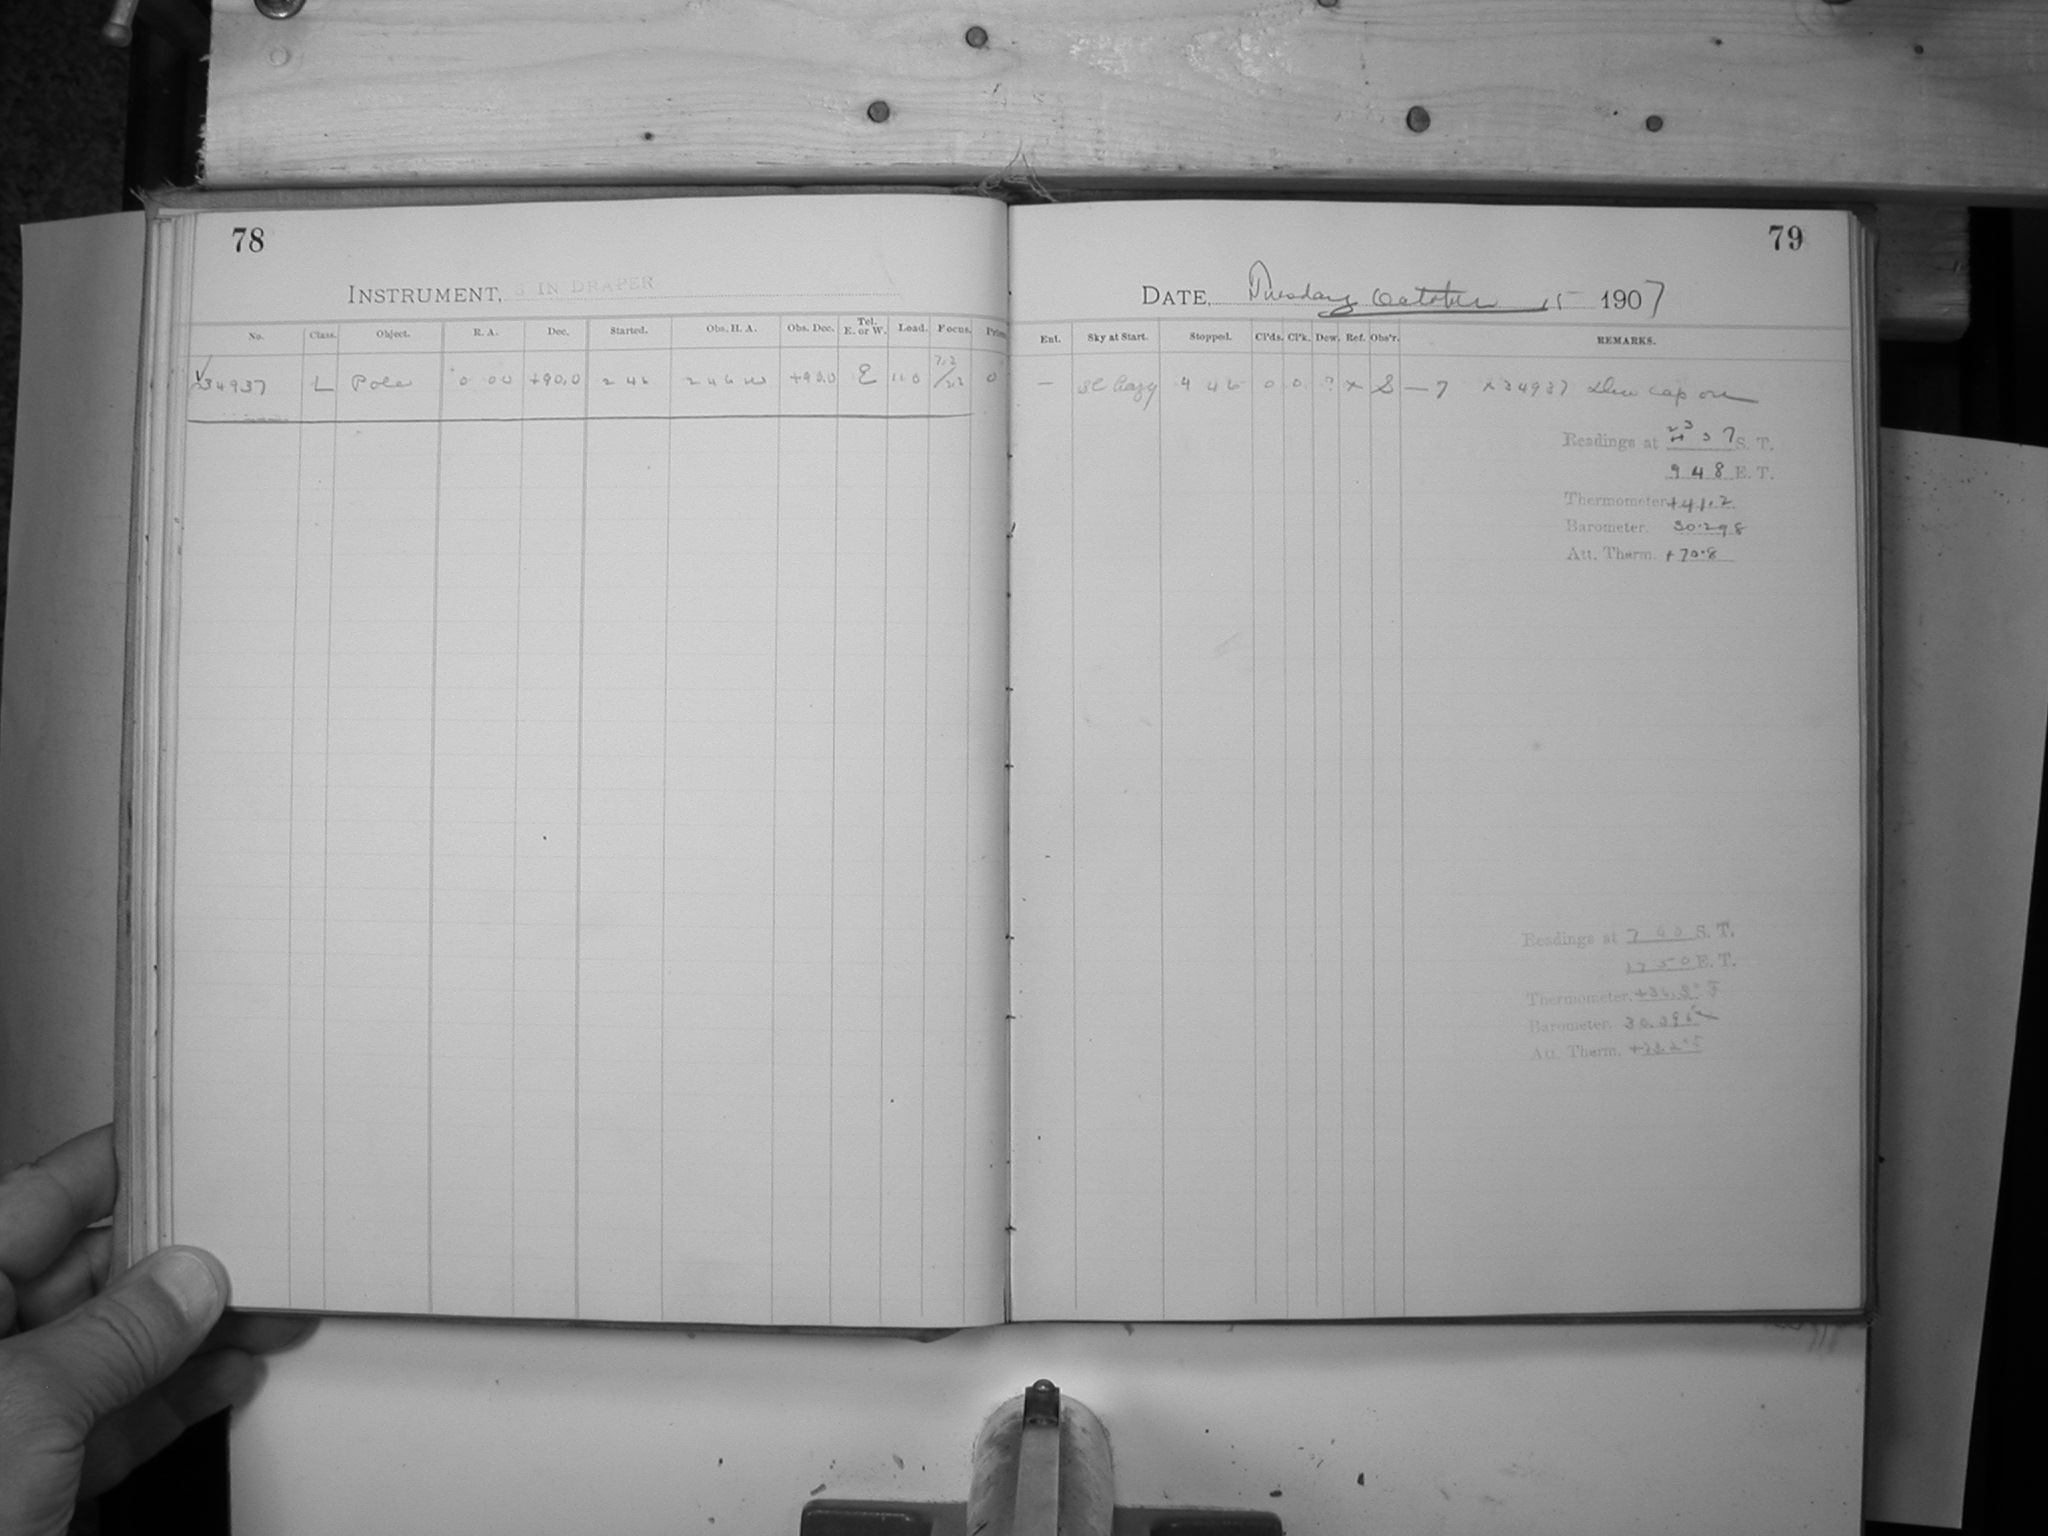 78
INSTRUMENT, 8 IN DRAPER
No. Class. Object. R. A. Dec. Started. Obs. H. A. Obs. Dec. Tel. E. or W. Load. Focus.
34937 L Pole 0 00 +90.0 2 46 2 46 w +90.0 E 110 7.2/22 0
79
DATE, Tuesday October 15 1907
Ent. Sky at Start. Stopped. Cl'ds. Cl'k. Dew. Ref. Obs'r. REMARKS.
— Sl hazy 4 46 0 0 ? x S — 7 x 34937 Dew cap on
Readings at 23 37 S. T.
9 48 E. T.
Thermometer +41.2
Barometer. 30.298
Att. Therm. +70.8
Readings at 7 40 S. T.
17 50 E. T.
Thermometer.
Barometer.
Att. Therm.